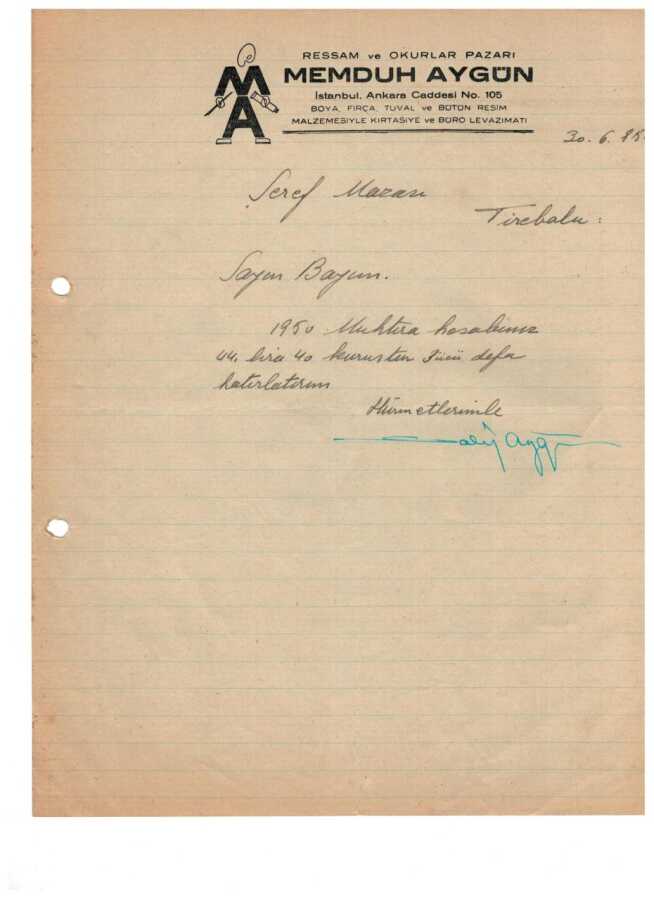 MA
RESSAM ve OKURLAR PAZARI
MEMDUH AYGÜN
İstanbul, Ankara Caddesi No. 105
BOYA, FIRÇA, TUVAL ve BÜTÜN RESİM
MALZEMESİYLE KIRTASİYE ve BÜRO LEVAZIMATI
30. 6. 95
Şeref Mazası
Tirebolu :
Sayın Bayım.
1950 Muhtıra hesabımız
44. lira 40 kuruştan 3üncü defa
hatırlatırım
Hürmetlerimle
Aygün